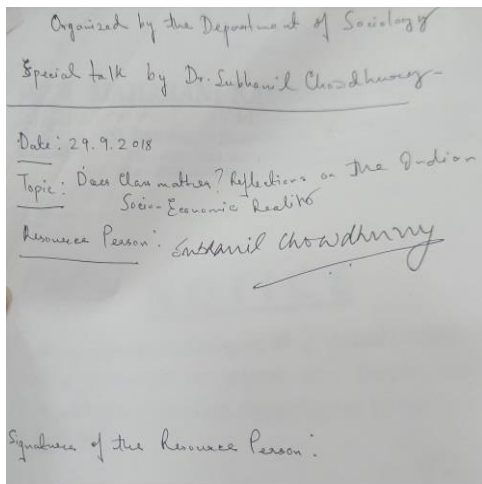 Organized by the Department of Sociology
Special talk by Dr. Subhanil Chowdhury -
Date: 29.9.2018
Topic: Does Class matter? Reflections on the Indian
Socio-Economic Reality
Resource Person: Subhanil Chowdhury
Signature of the Resource Person: